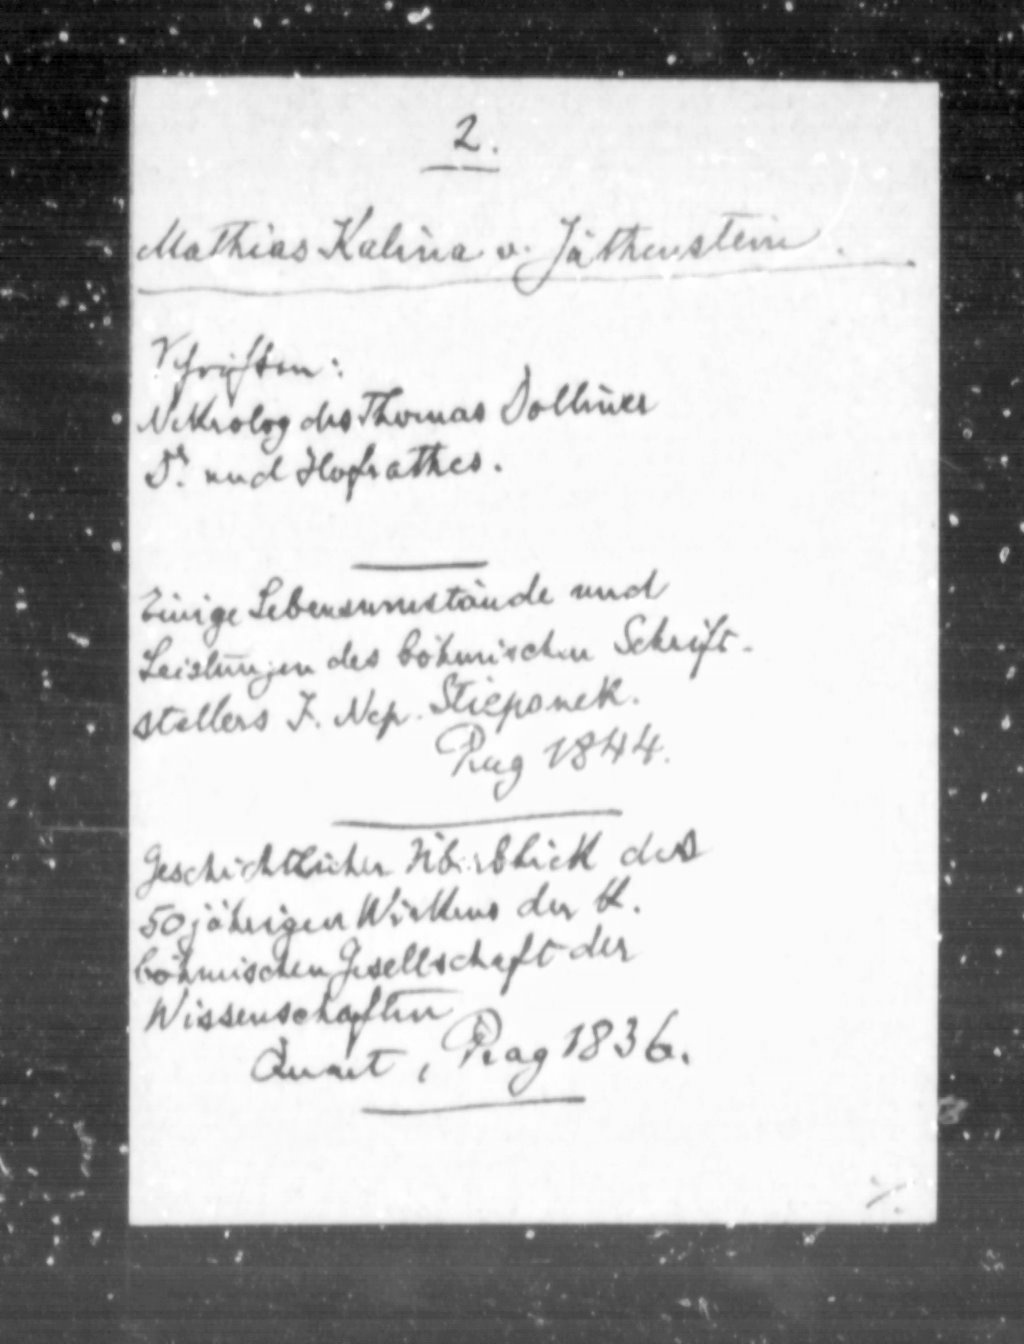 2.
Mathias Kalina v. Jäthenstein.
Schriften:
Nekrolog des Thomas Dolliner
Dr. und Hofrathes.
Einige Lebensumstände und
Leistungen des böhmischen Schrift-
stellers J. Nep. Stiepanek.
Prag 1844.
Geschichtlicher Überblick des
50 jährigen Wirkens der k.
böhmischen Gesellschaft der
Wissenschaften
Quart, Prag 1836.
./.